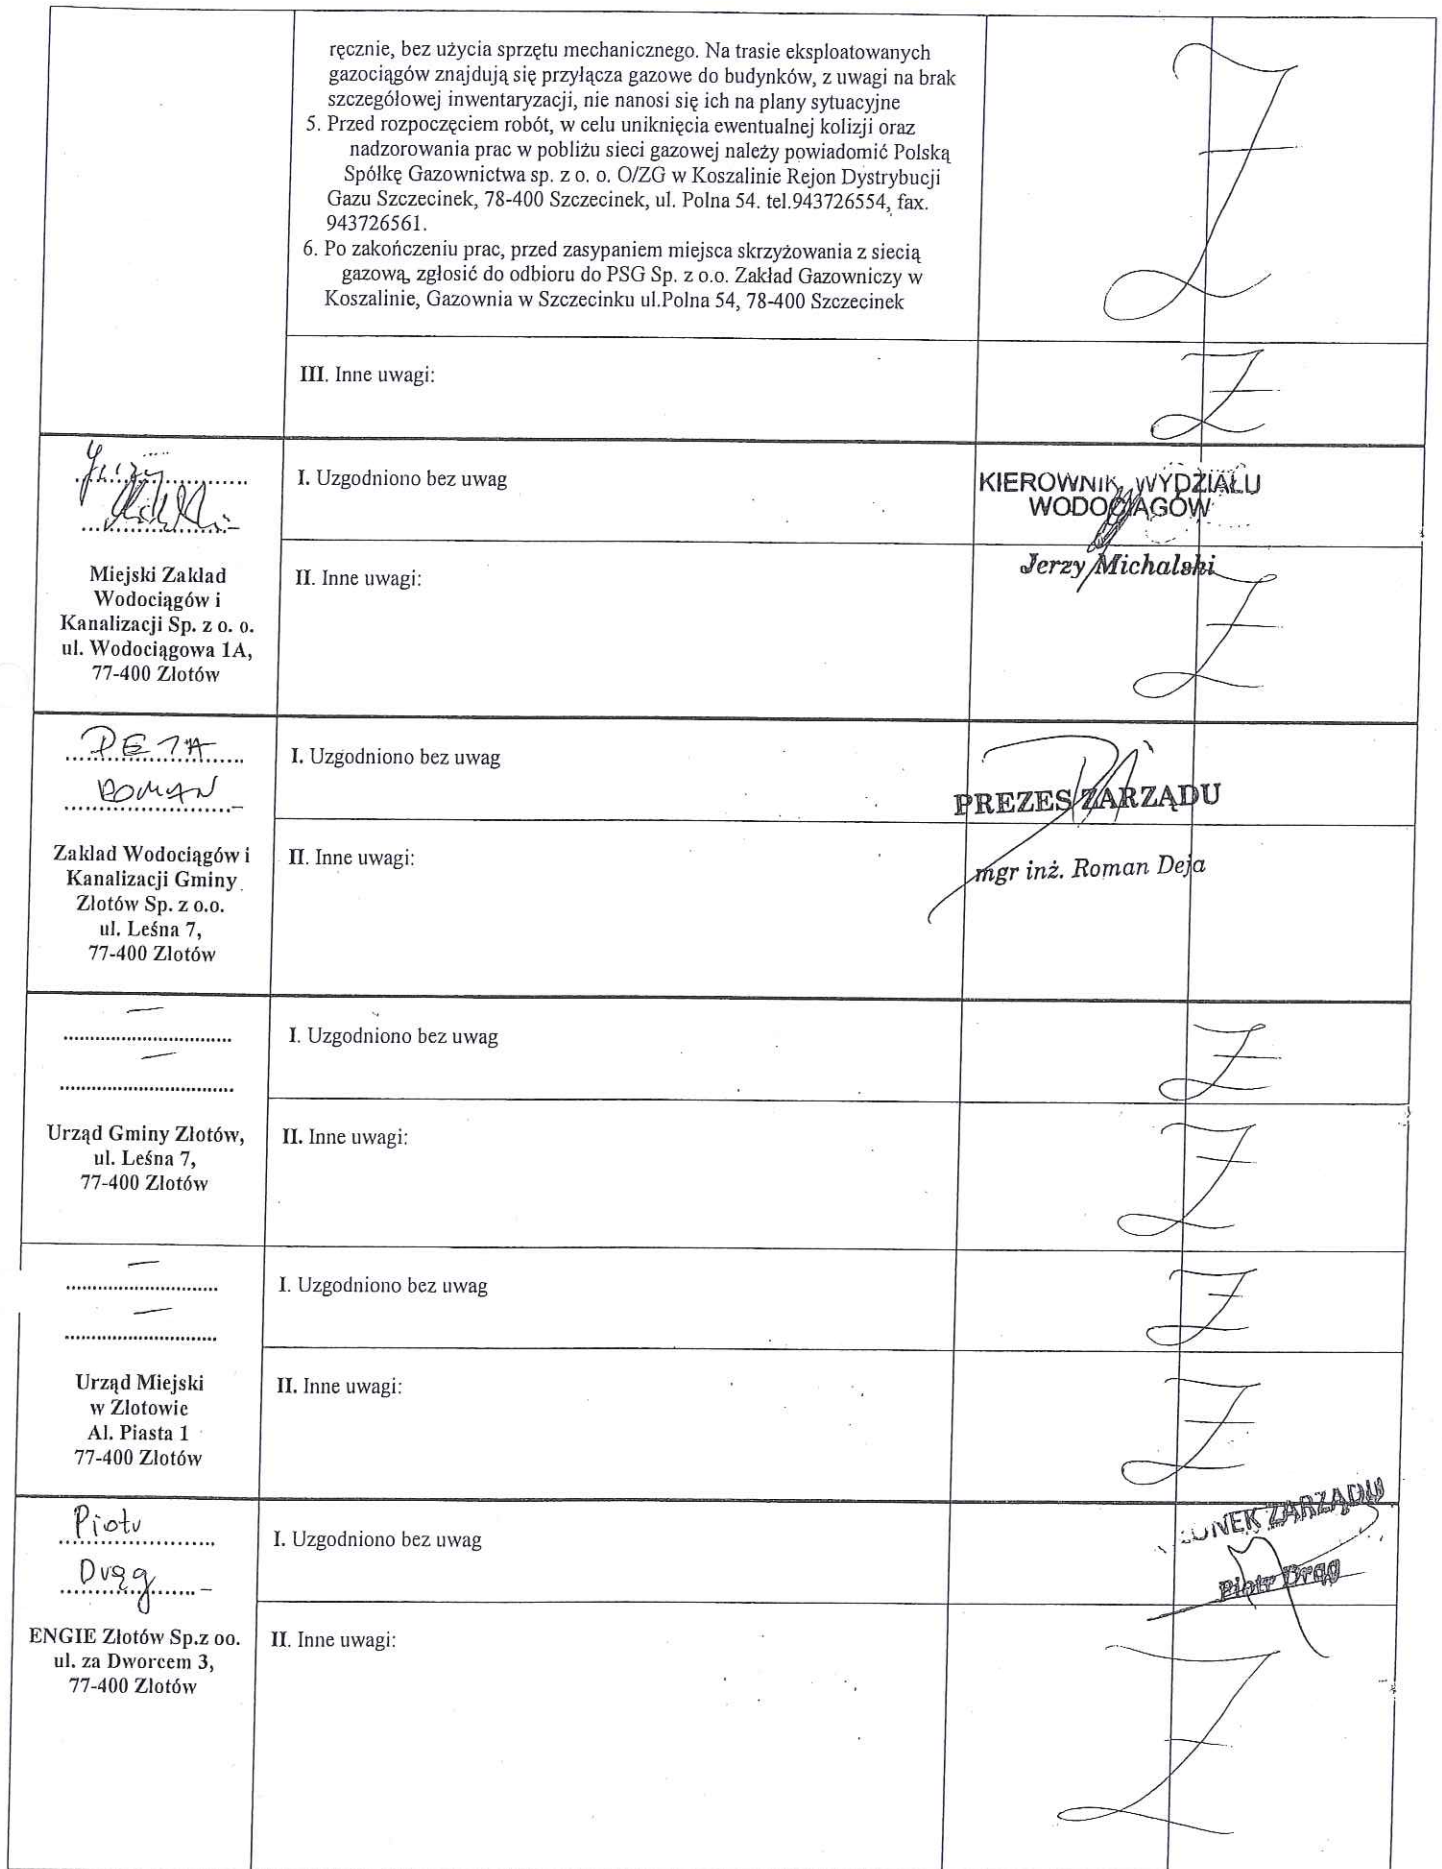 ręcznie, bez użycia sprzętu mechanicznego. Na trasie eksploatowanych
gazociągów znajdują się przyłącza gazowe do budynków, z uwagi na brak
szczegółowej inwentaryzacji, nie nanosi się ich na plany sytuacyjne
5. Przed rozpoczęciem robót, w celu uniknięcia ewentualnej kolizji oraz
nadzorowania prac w pobliżu sieci gazowej należy powiadomić Polską
Spółkę Gazownictwa sp. z o. o. O/ZG w Koszalinie Rejon Dystrybucji
Gazu Szczecinek, 78-400 Szczecinek, ul. Polna 54. tel.943726554, fax.
943726561.
6. Po zakończeniu prac, przed zasypaniem miejsca skrzyżowania z siecią
gazową, zgłosić do odbioru do PSG Sp. z o.o. Zakład Gazowniczy w
Koszalinie, Gazownia w Szczecinku ul.Polna 54, 78-400 Szczecinek
III. Inne uwagi:
Jerzy
Miejski Zakład
Wodociągów i
Kanalizacji Sp. z o. o.
ul. Wodociągowa 1A,
77-400 Złotów
I. Uzgodniono bez uwag
KIEROWNIK WYDZIAŁU
WODOCIĄGÓW
Jerzy Michalski
II. Inne uwagi:
DEJA
ROMAN
Zakład Wodociągów i
Kanalizacji Gminy
Złotów Sp. z o.o.
ul. Leśna 7,
77-400 Złotów
I. Uzgodniono bez uwag
PREZES ZARZĄDU
mgr inż. Roman Deja
II. Inne uwagi:
Urząd Gminy Złotów,
ul. Leśna 7,
77-400 Złotów
I. Uzgodniono bez uwag
II. Inne uwagi:
Urząd Miejski
w Złotowie
Al. Piasta 1
77-400 Złotów
I. Uzgodniono bez uwag
II. Inne uwagi:
Piotr
Drąg
ENGIE Złotów Sp.z oo.
ul. za Dworcem 3,
77-400 Złotów
I. Uzgodniono bez uwag
ZARZĄDU
Piotr Drąg
II. Inne uwagi: